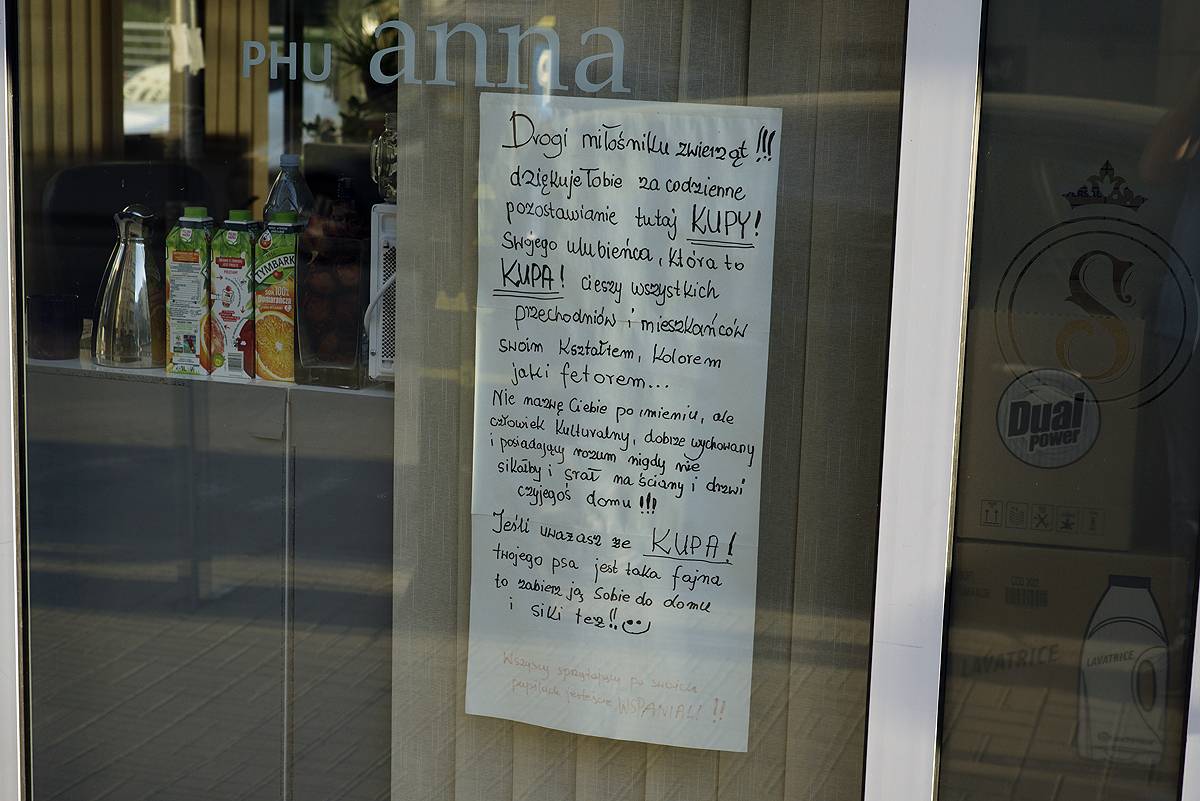 PHU anna
Drogi miłośniku zwierząt !!!
dziękuje Tobie za codzienne
pozostawianie tutaj KUPY!
Swojego ulubieńca, która to
KUPA! cieszy wszystkich
przechodniów i mieszkańców
swoim kształtem, kolorem
jak i fetorem...
Nie nazwę Ciebie po imieniu, ale
człowiek kulturalny, dobrze wychowany
i posiadający rozum nigdy nie
sikałby i srał na ściany i drzwi
czyjegoś domu !!!
Jeśli uważasz że KUPA!
twojego psa jest taka fajna
to zabierz ją sobie do domu
i siki też!!
Wszyscy sprzątający po swoich
pupilach jesteście WSPANIALI !!
TYMBARK
sok 100%
Pomarańcza
S
Dual
power
LAVATRICE
LAVATRICE